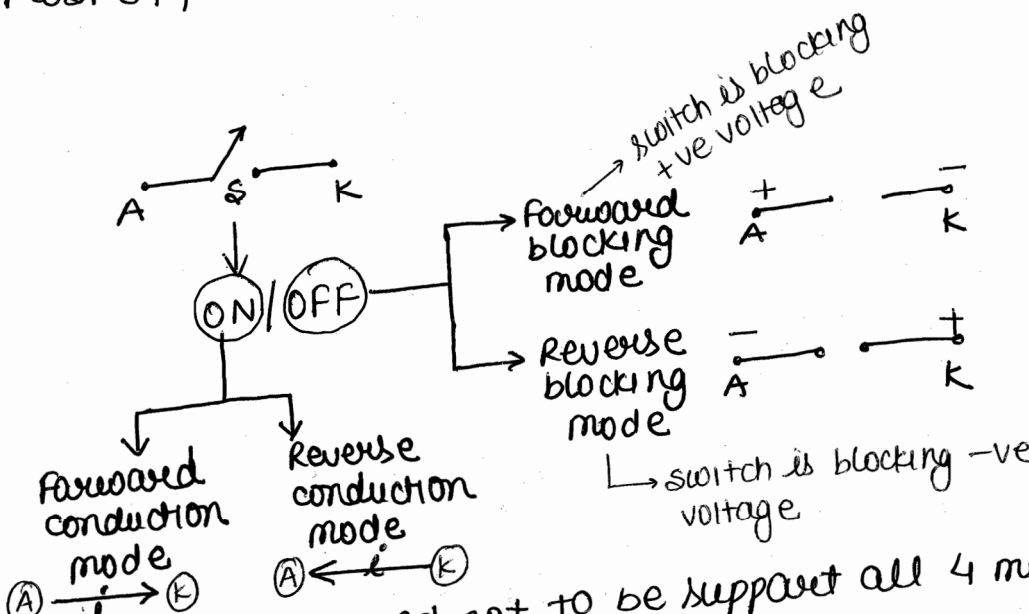 switch is blocking
+ve voltage
A
S
K
Forward
blocking
mode
+
A
−
K
ON / OFF
Reverse
blocking
mode
−
A
+
K
switch is blocking -ve
voltage
Forward
conduction
mode
A i K
Reverse
conduction
mode
A i K
to be support all 4